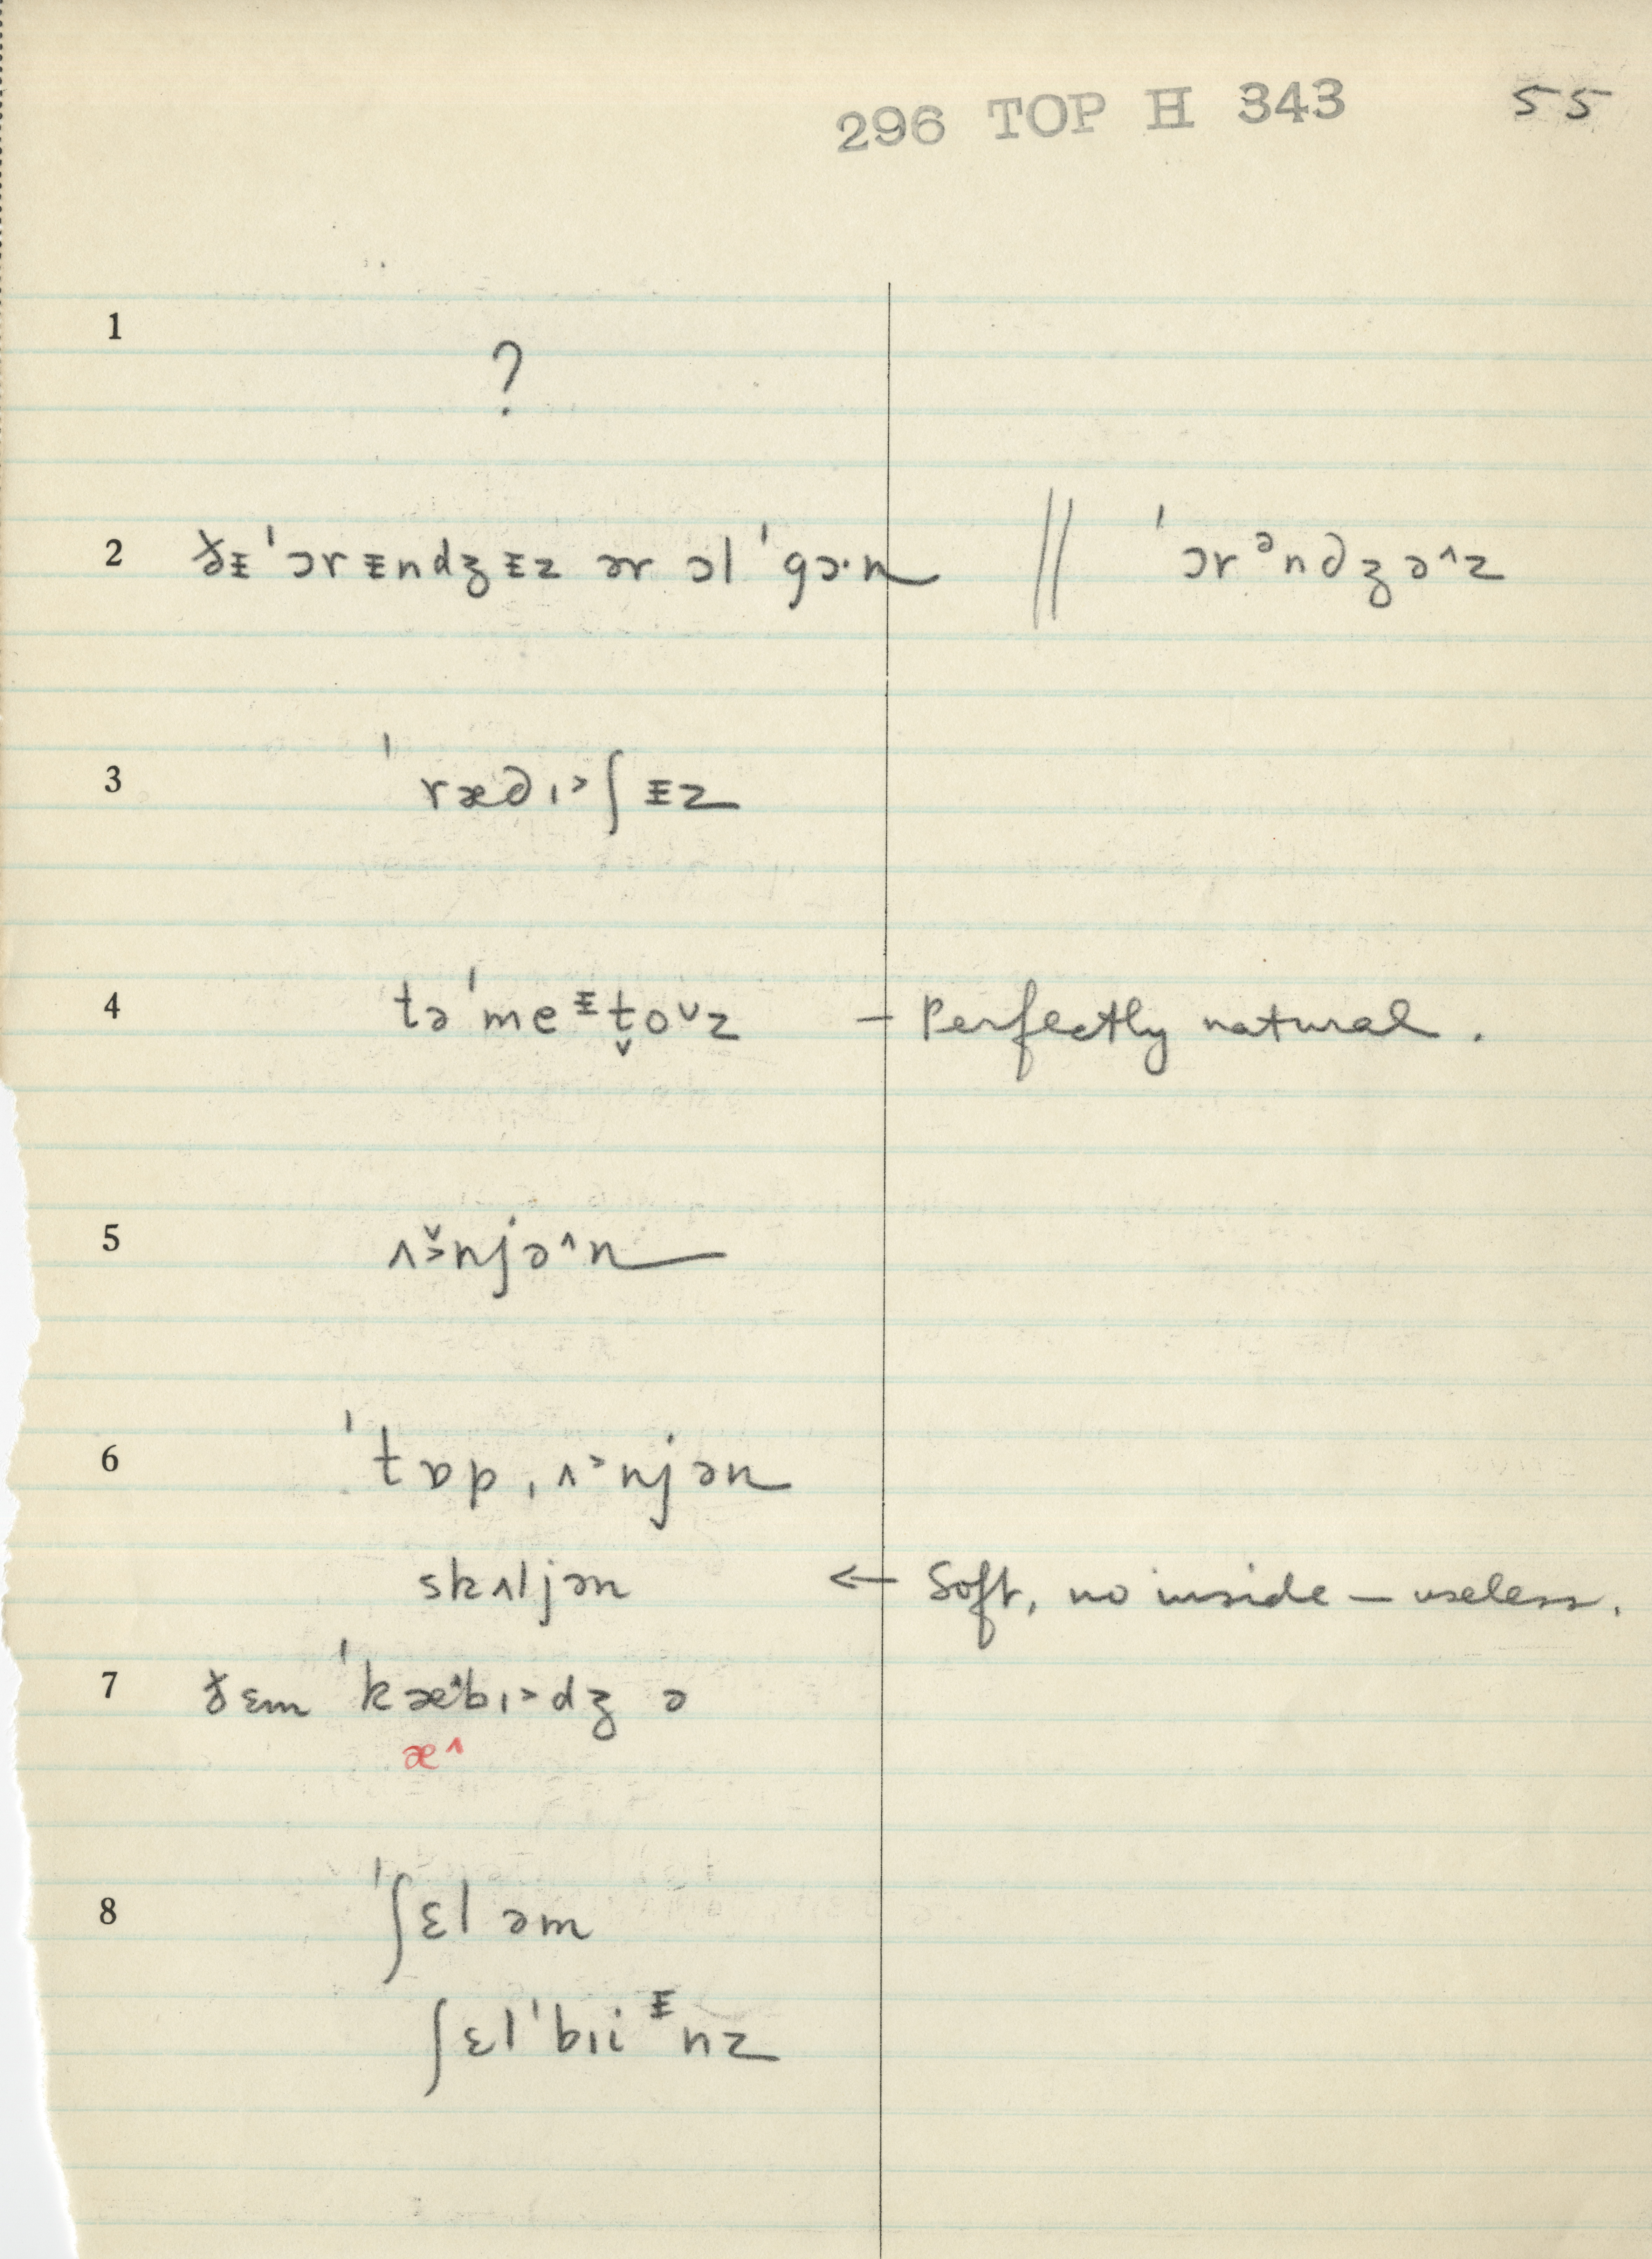 296 TOP H 343 55
1
?
2 ðᵻ ˈɔrᵻndʒᵻz ər ɔl ˈgɔ·n ‖ ˈɔrᵊn∂ʒə^z
3 ˈræ∂ɪ˃ʃᵻz
4 təˈmeᵻt̬oᵛz – Perfectly natural.
5 ʌ˃̌njə^n
6 ˈtɒpˌʌ˃njən
skʌljən ← Soft, no inside – useless.
7 ðɛm ˈkæ^bɪ˃dʒ ə
æ^
8 ˈʃɛl əm
ʃɛlˈbɪiᵻnz